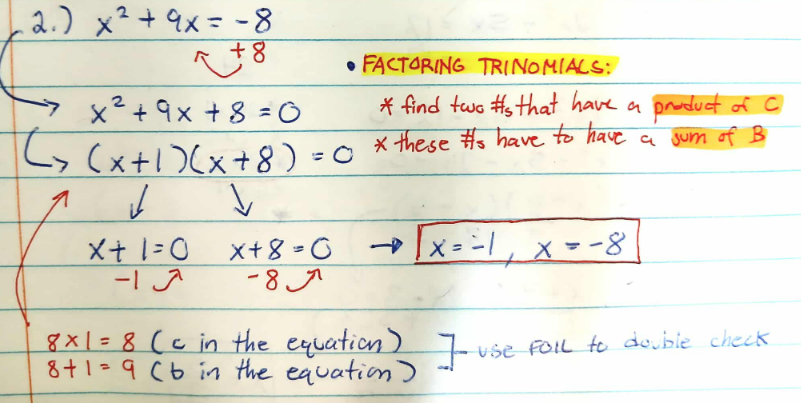 2.) x² + 9x = -8
+8
• FACTORING TRINOMIALS:
x² + 9x + 8 = 0
* find two #s that have a product of C
(x+1)(x+8) = 0
* these #s have to have a sum of B
x+1=0 x+8=0 → x=-1, x=-8
-1 -8
8x1=8 (c in the equation)
8+1=9 (b in the equation)
use FOIL to double check